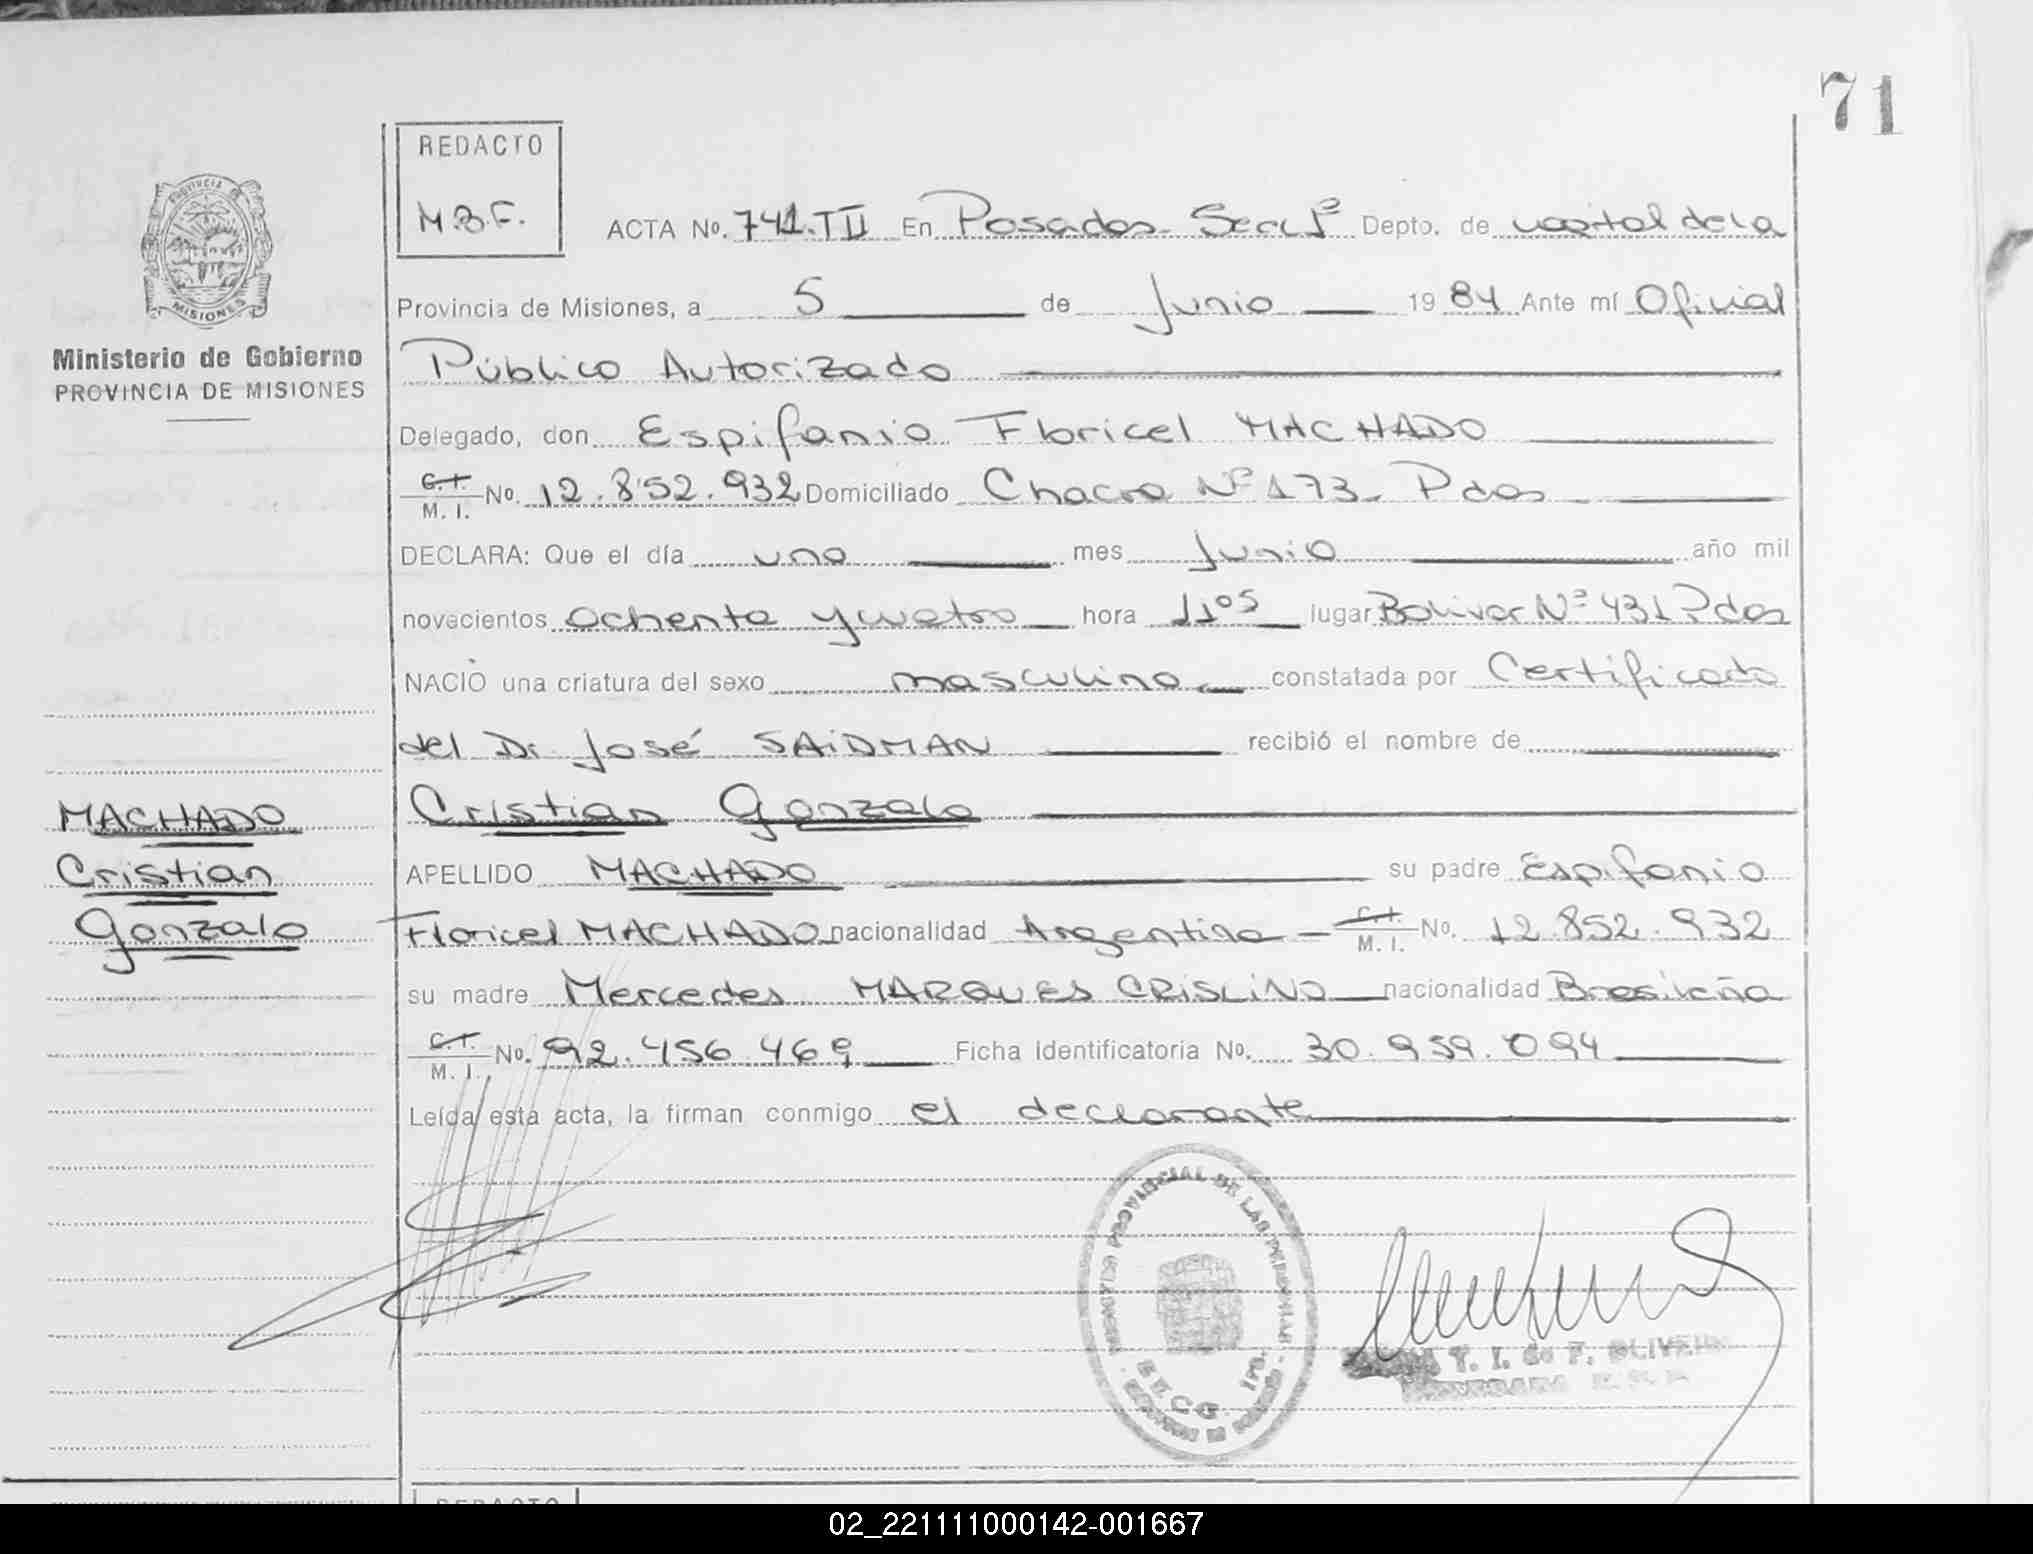 71
REDACTO
M.B.F.
PROVINCIA DE
MISIONES
Ministerio de Gobierno
PROVINCIA DE MISIONES
ACTA No. 741.TII En Posadas Secc 1ª Depto. de capital de la
Provincia de Misiones, a 5 de Junio 1984 Ante mí Oficial
Público Autorizado
Delegado, don Espifanio Floricel MACHADO
C.I. / M. I. No. 12.852.932 Domiciliado Chacra Nº 173- Pdas
DECLARA: Que el día uno mes Junio año mil
novecientos ochenta y cuatro hora 11º⁵ lugar Bolivar Nº 431 Pdas
NACIÓ una criatura del sexo masculino constatada por Certificado
del Dr José SAIDMAN recibió el nombre de
Cristian Gonzalo
MACHADO
Cristian
Gonzalo
APELLIDO MACHADO su padre Espifanio
Floricel MACHADO nacionalidad Argentina - C.I. / M. I. No. 12.852.932
su madre Mercedes MARQUES CRISLINO nacionalidad Brasileña
C.I. / M. I. No. 92.456.469 Ficha Identificatoria No. 30.959.094
Leída esta acta, la firman conmigo el declarante
PROVINCIAL DE LAS PERSONAS
T. I. de F. OLIVEIRA
REDACTO
02_221111000142-001667